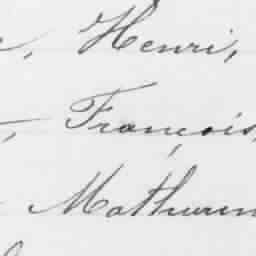 , Henri,
, François,
Mathurin